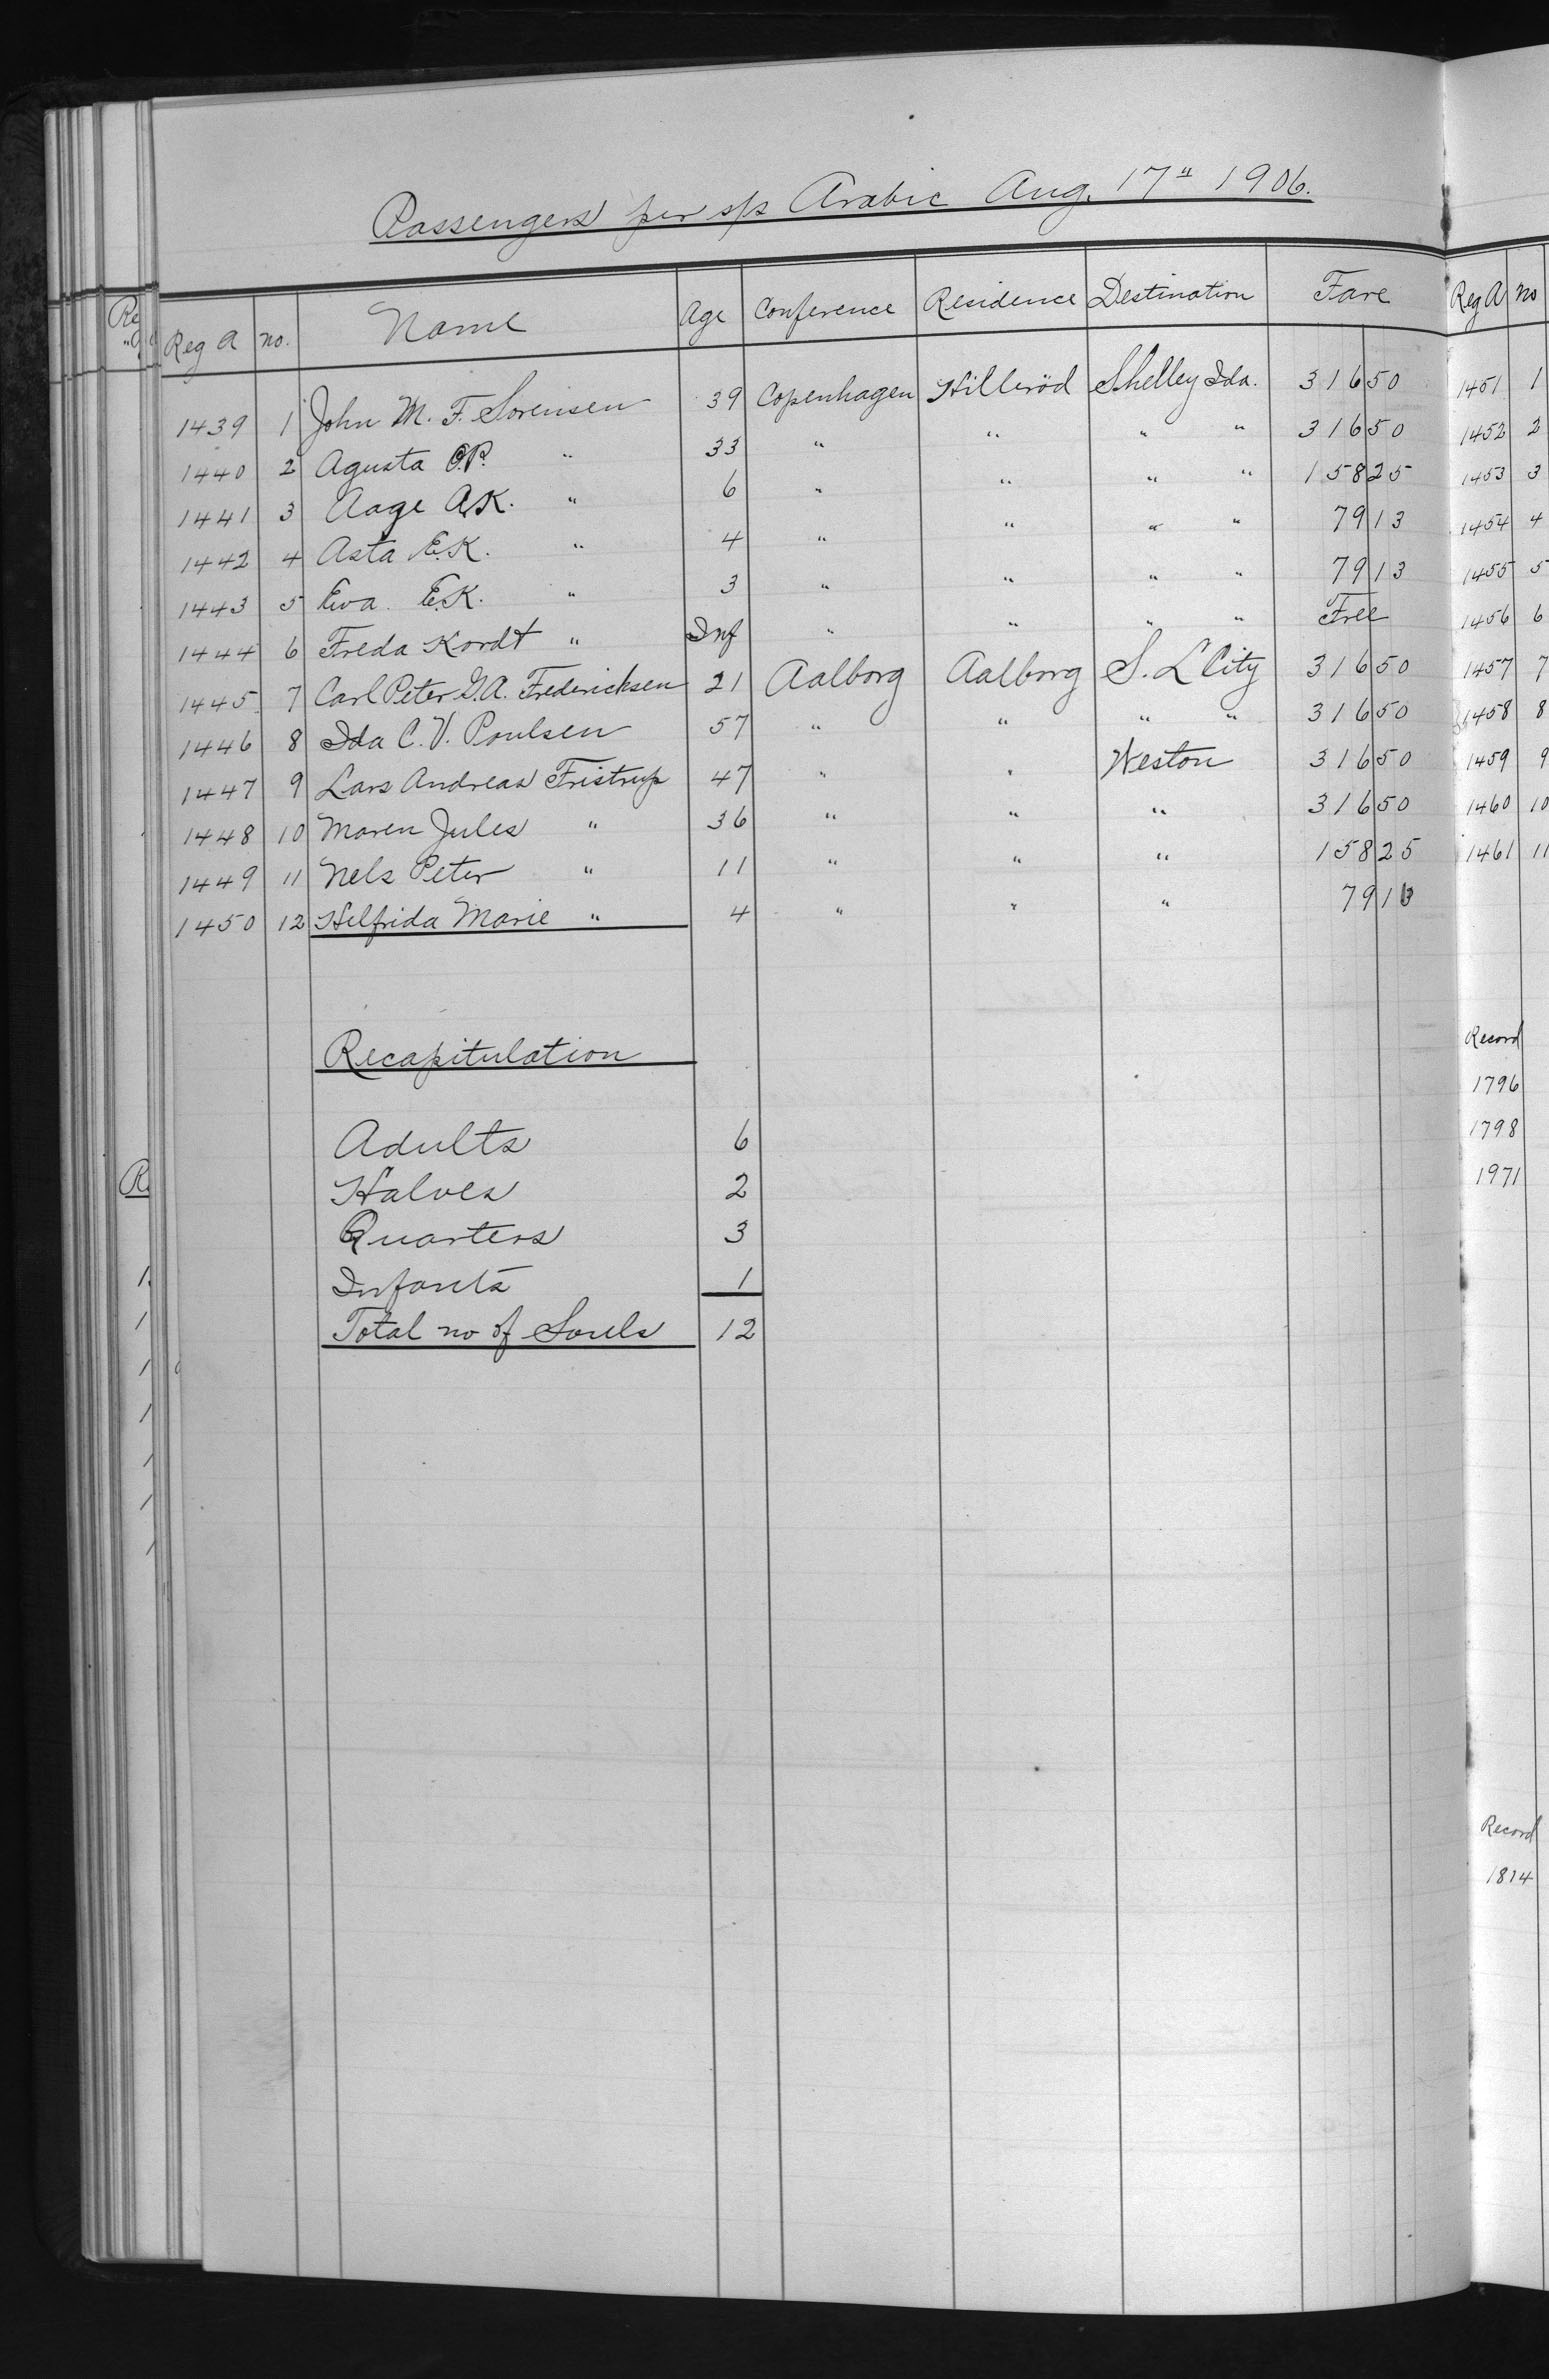 Passengers per s/s Arabic Aug. 17" 1906.
Reg A no. Name Age Conference Residence Destination Fare
1439 1 John M. F. Sorensen 39 Copenhagen Hilleröd Shelley Ida. 316 50
1440 2 Agusta C.P. " 33 " " " " 316 50
1441 3 Aage A.K. " 6 " " " " 158 25
1442 4 Asta E.K. " 4 " " " " 79 13
1443 5 Eva E.K. " 3 " " " " 79 13
1444 6 Freda Kordt " Inf " " " " Free
1445 7 Carl Peter G.A. Fredericksen 21 Aalborg Aalborg S. L City 316 50
1446 8 Ida C. V. Poulsen 57 " " " " 316 50
1447 9 Lars Andreas Fristrup 47 " " Weston 316 50
1448 10 Maren Jules " 36 " " " 316 50
1449 11 Nels Peter " 11 " " " 158 25
1450 12 Helfrida Marie " 4 " " " 79 13
Recapitulation
Adults 6
Halves 2
Quarters 3
Infants 1
Total no of Souls 12
Reg A no
1451 1
1452 2
1453 3
1454 4
1455 5
1456 6
1457 7
1458 8
1459 9
1460 10
1461 11
Record
1796
1798
1971
Record
1814